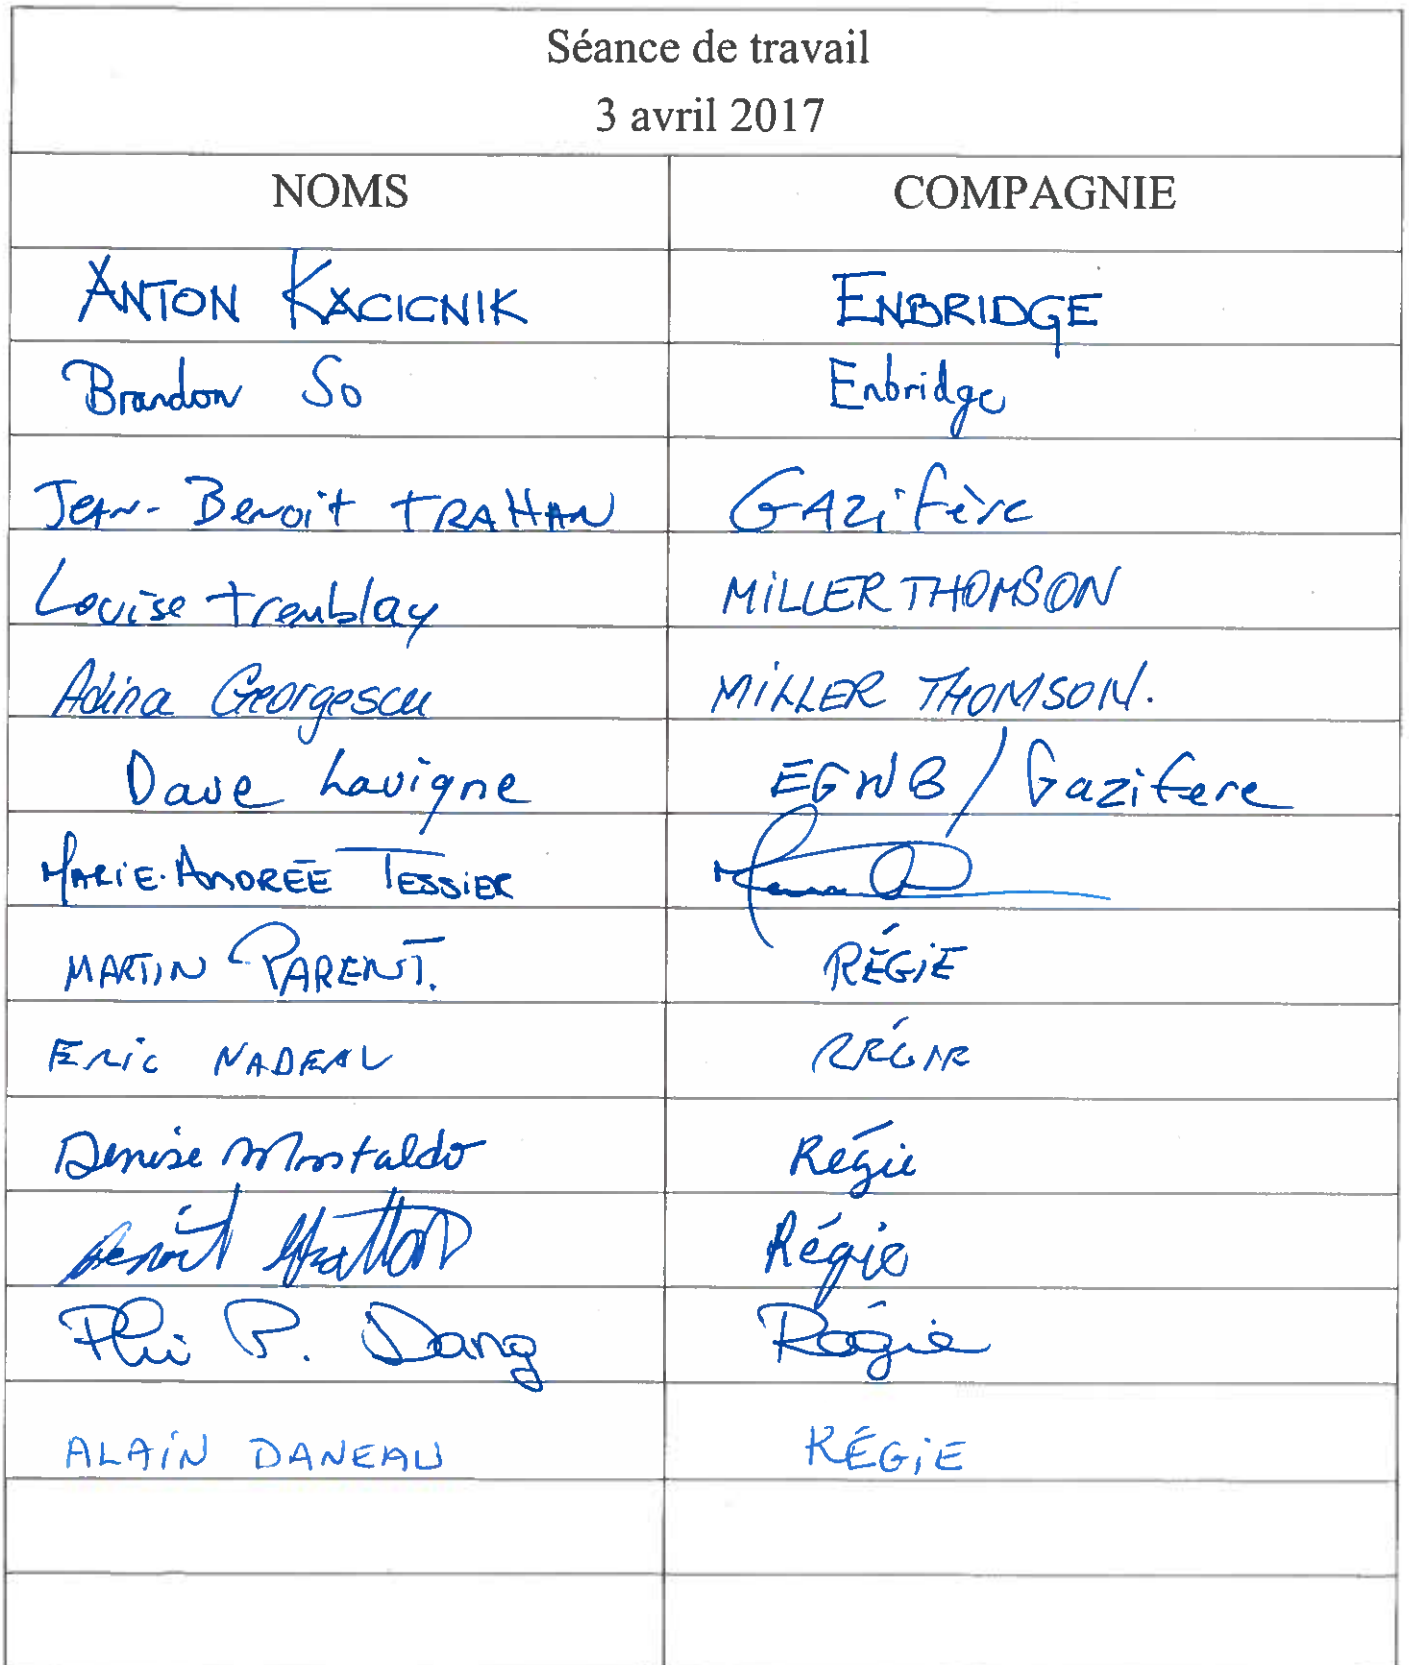 Séance de travail
3 avril 2017
NOMS COMPAGNIE
ANTON KACICNIK ENBRIDGE
Brandon So Enbridge
Jean-Benoit TRAHAN GAZifère
Louise Tremblay MiLLER THOMSON
Adina Georgescu MiLLER THOMSON.
Dave Lavigne EGNB / Gazifere
MARIE-ANDRÉE TESSIER
MARTIN PARENT. RÉGiE
ERiC NADEAU RÉGIE
Denise Mostaldo Régie
Benoît Régie
Phi P. Dang Régie
ALAiN DANEAU RÉGiE